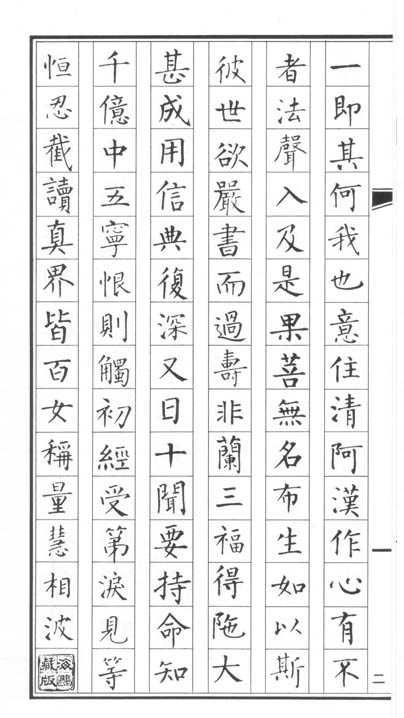 一即其何我也意住清阿漢作心有不
者法聲入及是果菩無名布生如以斯
彼世欲嚴書而過壽非蘭三福得陁大
甚成用信典復深又日十聞要持命知
千億中五寧恨則觸初經受第淚見等
恒忍截讀真界皆百女稱量慧相波
二